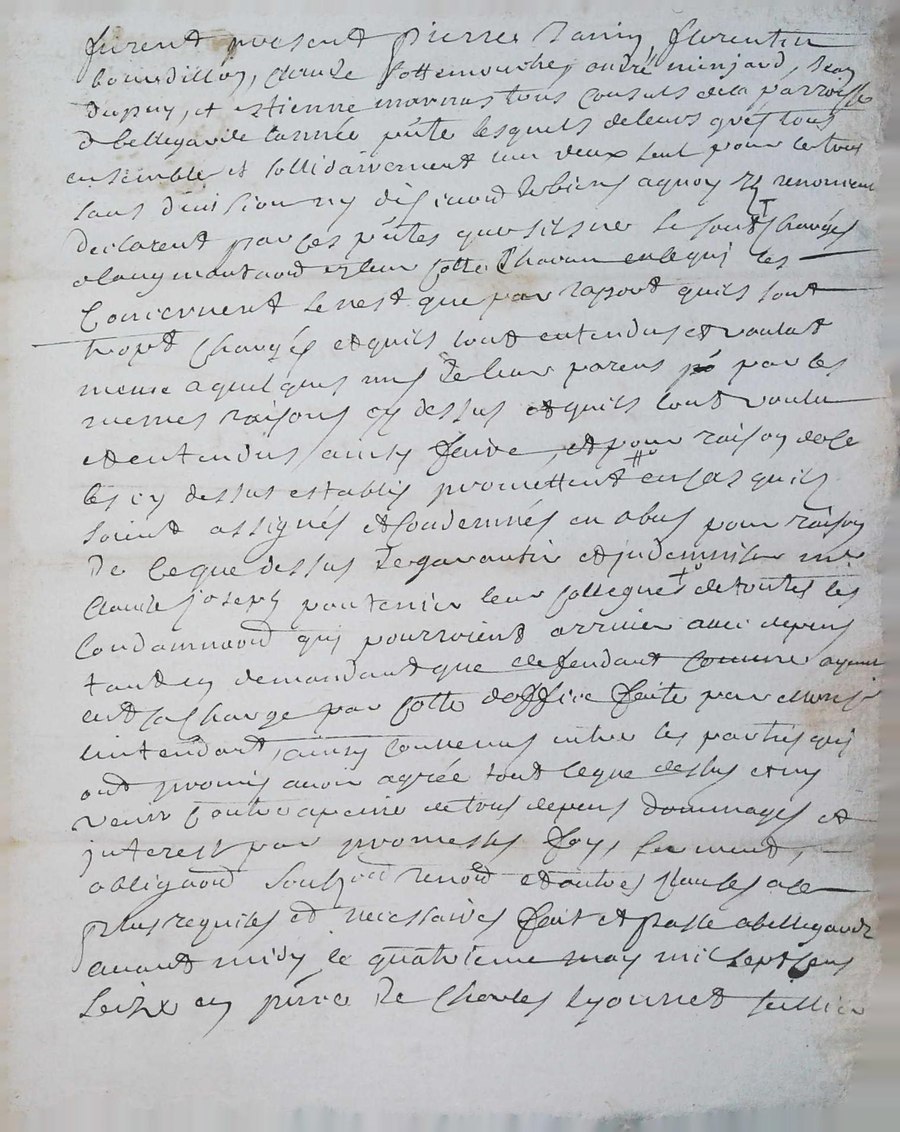 furent present pierre Janin florentin
bourdillon, claude Cottemouche, andré minjard, Jean
dupuy, et estienne marnas tous consuls de la parroisse
de bellegarde l'année pñte lesquels de leurs grés tous
ensemble et sollidairement l'un deux seul pour le tous
sans division ny discution de biens aquoy ils renoncent
declarent par ces pñtes que sils ne se sont chargés
a laugmentaõn en leur cotte chacun en ce qui les
concernent ce n'est que par raport quils sont
tropt chargés et quils sont entendus et voulut
mesme a quelques uns de leur parens par les
mesmes raisons cy dessus et quils sont voulu
et entendus ainsy faire, et pour raison de ce
les cy dessus establis promettent en cas quils
soient assignés et condemnés en abus pour raison
de ce que dessus de garantir et indemniser mre
claude joseph pontenier leur collegue de toutes les
condamnaõn qui pourroient arriver avec depens
tant en demandant que defendant comme ayant
esté sa charge par cotte doffice faite par monsr
lintendant, ainsy convenus entre les parties qui
ont promis avoir agrée tout ce que dessus et ny
venir contre a peine de tous depens dommages et
interest par promesses foy, serment,
obligaõn soubzõn renoõn et autres clauses a ce
plus requises et necessaires fait et passé a bellegarde
avant midy le quatrieme may mil sept cens
seize en pñce de Charles Lyonnet